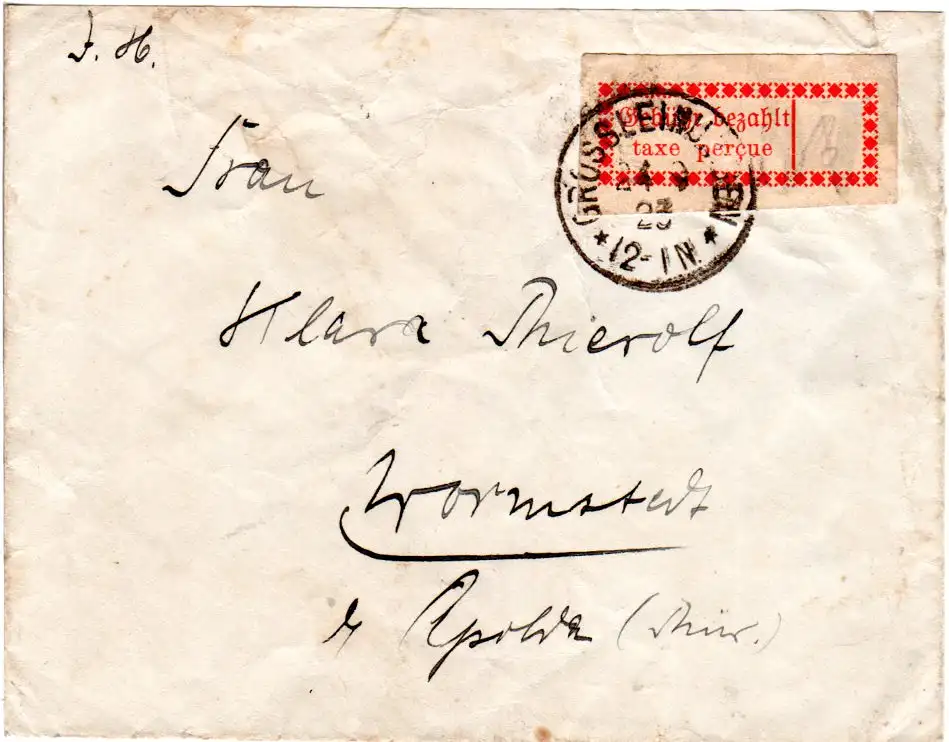 F. H.
Gebühr bezahlt
taxe perçue
GROSSHERINGEN
24 9
23
* 12-1 N *
Frau
Klara Thierolf
Wormstedt
b/ Apolda (Thür.)